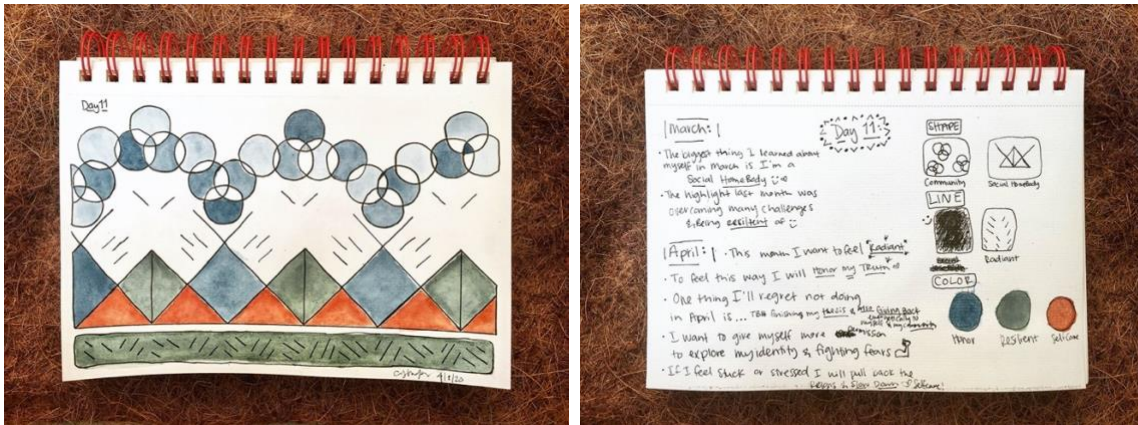 Day 11
4/8/20
March:
Day 11:
• The biggest thing I learned about
myself in March is I'm a
Social HomeBody
• The highlight last month was
overcoming many challenges
& Being resilient
April:
• This month I want to feel "Radiant"
• To feel this way I will Honor my Truth
• One thing I'll regret not doing
in April is... TBH finishing my thesis & Giving Back
energetically to
myself & my community
• I want to give myself more permission
to explore my identity & fighting fears
• If I feel stuck or stressed I will pull back the
reigns & Slow Down Selfcare!
SHAPE
Community
Social HomeBody
LINE
Radiant
COLOR
Honor
Resilient
Selfcare